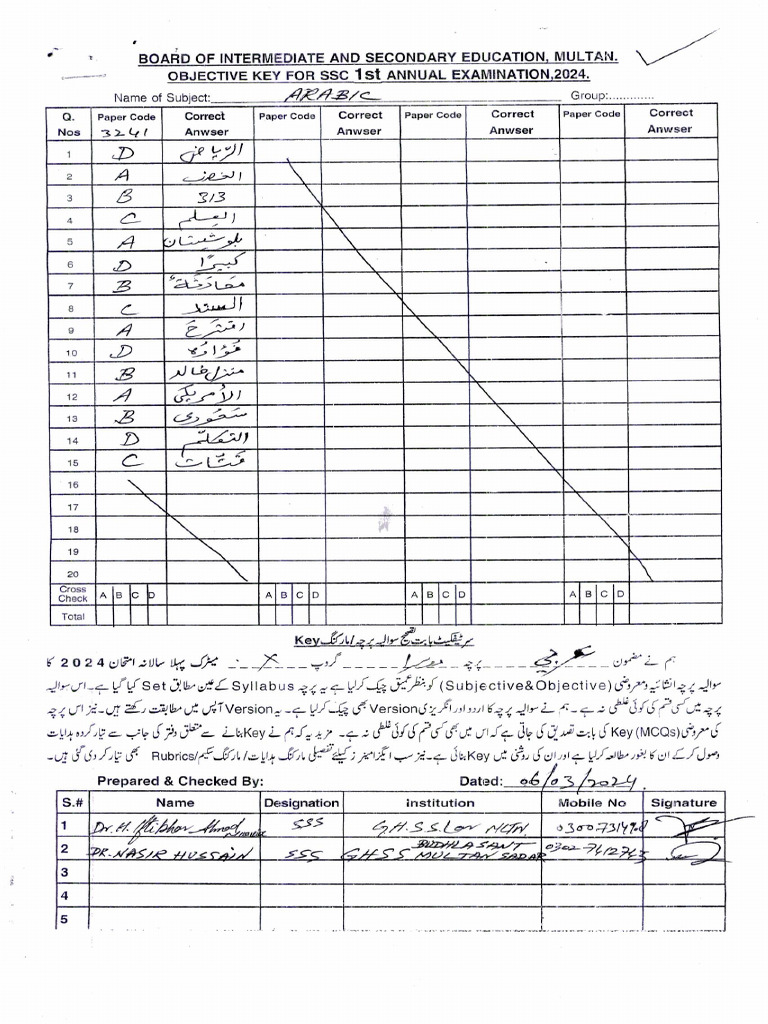 BOARD OF INTERMEDIATE AND SECONDARY EDUCATION, MULTAN.
OBJECTIVE KEY FOR SSC 1st ANNUAL EXAMINATION,2024.
Name of Subject: ARABIC Group:............
Q. Nos Paper Code 3241 Correct Anwser Paper Code Correct Anwser Paper Code Correct Anwser Paper Code Correct Anwser
1 D الرّياض
2 A الخضر
3 B 313
4 C العلم
5 A بلوشستان
6 D كبيرًا
7 B محادثة
8 C السند
9 A اقترح
10 D فؤاده
11 B منزل خالد
12 A الأمريكي
13 B سعودي
14 D التعلّم
15 C
16
17
18
19
20
Cross Check A B C D A B C D A B C D A B C D
Total
سرٹیفکیٹ بابت تصحیح سوالیہ پرچہ / مارکنگ Key
ہم نے مضمون عربی پرچہ گروپ X میٹرک پہلا سالانہ امتحان 2024 کا
سوالیہ پرچہ انشائیہ و معروضی (Subjective&Objective) کو بنظر عمیق چیک کر لیا ہے یہ پرچہ Syllabus کے عین مطابق Set کیا گیا ہے۔ اس سوالیہ
پرچہ میں کسی قسم کی کوئی غلطی نہ ہے۔ ہم نے سوالیہ پرچہ کا اردو اور انگریزی Version بھی چیک کر لیا ہے۔ یہ Version آپس میں مطابقت رکھتے ہیں۔ نیز اس پرچہ
کی معروضی (MCQs) Key کی بابت تصدیق کی جاتی ہے کہ اس میں بھی کسی قسم کی کوئی غلطی نہ ہے۔ مزید یہ کہ ہم نے Key بنانے سے متعلق دفتر کی جانب سے تیار کردہ ہدایات
وصول کر کے ان کا بغور مطالعہ کر لیا ہے اور ان کی روشنی میں Key بنائی ہے۔ نیز سب ایگزامینرز کیلئے تفصیلی مارکنگ ہدایات / مارکنگ سکیم / Rubrics بھی تیار کر دی گئی ہیں۔
Prepared & Checked By: Dated: 06/03/2024
S.# Name Designation Institution Mobile No Signature
1 Dr. H. Iftikhar Ahmad SSS G.H.S.S MLTN
2 DR. NASIR HUSSAIN SSS GHSS BUDHLA SANT MULTAN SADAR 0302-7612743
3
4
5